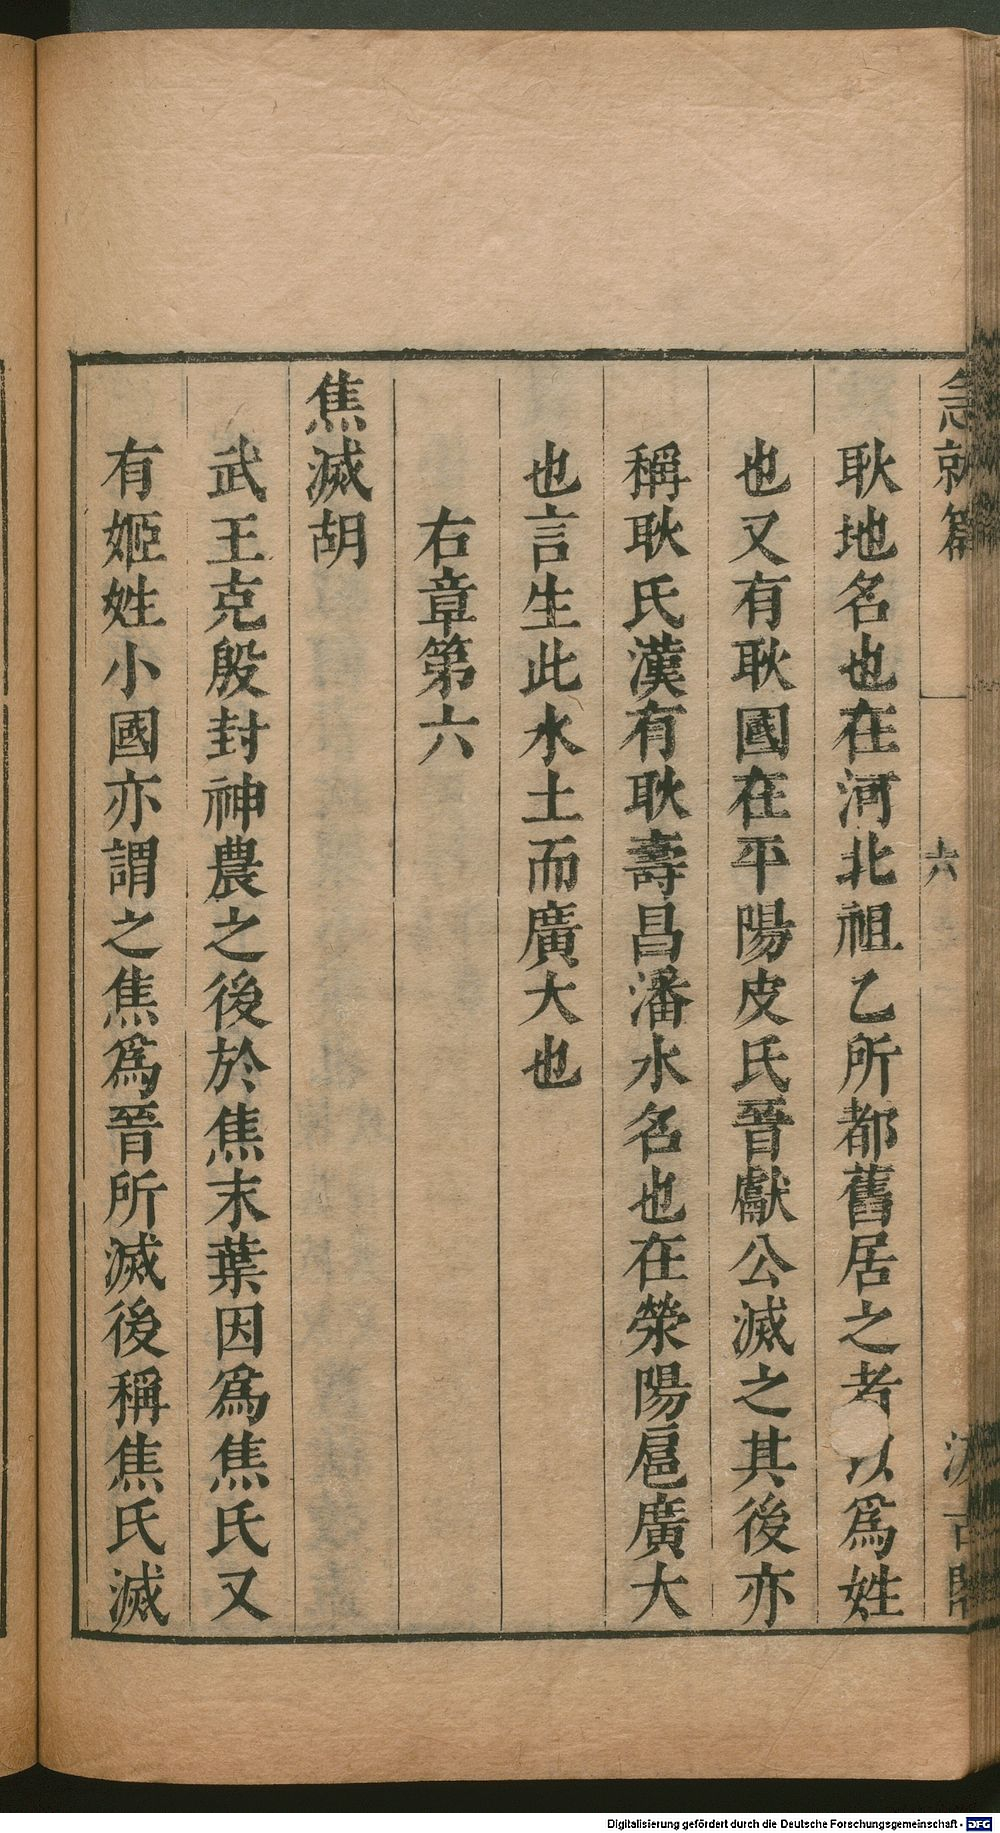 急就篇 六 汲古閣
耿地名也在河北祖乙所都舊居之者以爲姓
也又有耿國在平陽皮氏晉獻公滅之其後亦
稱耿氏漢有耿壽昌潘水名也在滎陽扈廣大
也言生此水土而廣大也
右章第六
焦滅胡
武王克殷封神農之後於焦末葉因爲焦氏又
有姬姓小國亦謂之焦爲晉所滅後稱焦氏滅
Digitalisierung gefördert durch die Deutsche Forschungsgemeinschaft - DFG